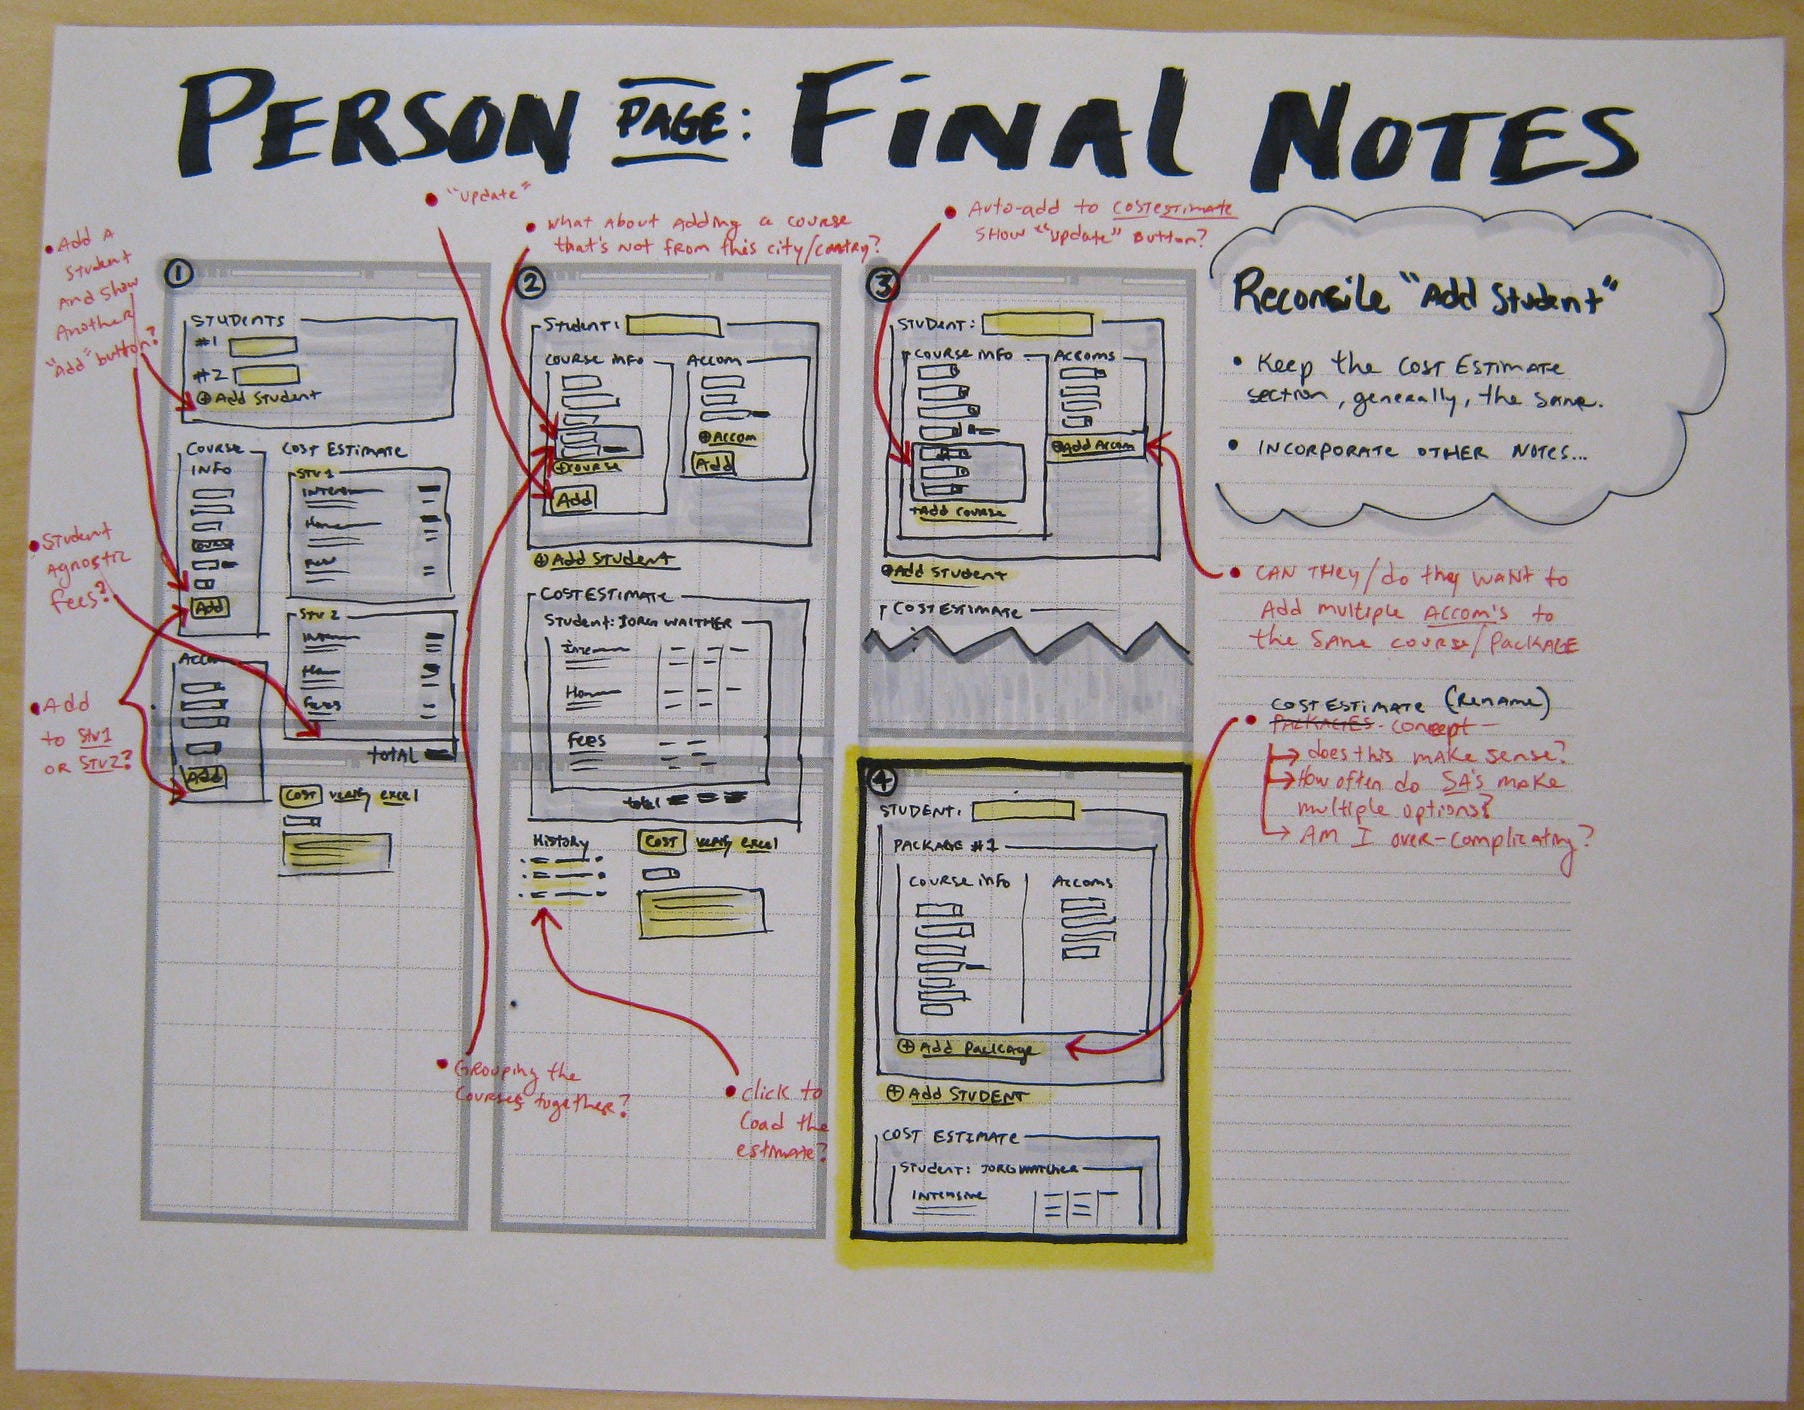 PERSON PAGE: FINAL NOTES
• "update"
• what about adding a course
that's not from this city/contry?
• Auto-add to costestimate
show "update" button?
• Add a
student
and show
another
"Add" button?
• Student
agnostic
fees?
• Add
to Stu1
or Stu2?
1
Students
#1
#2
⊕ Add student
Course
info
Course
Add
Accom
Add
Cost Estimate
Stu 1
Stu 2
Fees
total
Cost verify excel
2
Student:
Course info
⊕ course
Add
Accom
⊕ Accom
Add
⊕ Add student
Cost Estimate
Student: Jorg Walther
Fees
total
History
Cost verify excel
• Grouping the
courses together?
• click to
load the
estimate?
3
Student:
Course info
+Add course
Accoms
⊕ Add Accom
⊕ Add student
Cost Estimate
4
Student:
Package #1
Course info
Accoms
⊕ Add package
⊕ Add student
Cost Estimate
Student: Jorg Walther
Intensive
Reconsile "Add Student"
• Keep the cost estimate
section, generally, the same.
• Incorporate other notes...
• CAN they/do they want to
Add multiple Accom's to
the same course/package
Cost Estimate (rename)
• Packages concept —
→ does this make sense?
→ How often do SA's make
multiple options?
→ Am I over-complicating?